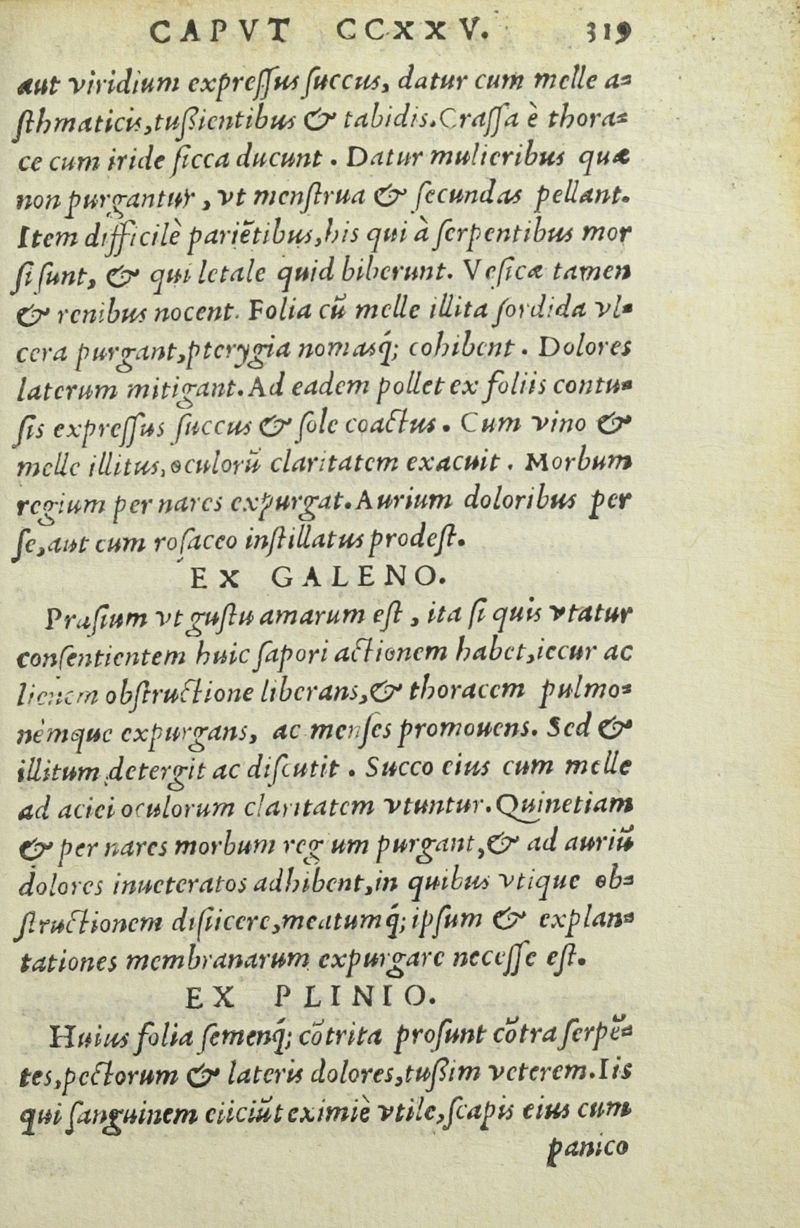 CAPVT CCXXV. 319
aut viridium expreſſus ſuccus, datur cum melle a=
ſthmaticis,tuſsientibus & tabidis.Craſſa è thora=
ce cum iride ſicca ducunt. Datur mulieribus quæ
non purgantur, vt menſtrua & ſecundas pellant.
Item difficilè pariẽtibus,his qui à ſerpentibus mor
ſi ſunt, & qui letale quid biberunt. Veſicæ tamen
& renibus nocent. Folia cũ melle illita ſordida vl=
cera purgant,pterygia nomasq́; cohibent. Dolores
laterum mitigant.Ad eadem pollet ex foliis contu=
ſis expreſſus ſuccus & ſole coactus. Cum vino &
melle illitus,oculorũ claritatem exacuit. Morbum
regium per nares expurgat.Aurium doloribus per
ſe,aut cum roſaceo inſtillatus prodeſt.
EX GALENO.
Praſium vt guſtu amarum eſt, ita ſi quis vtatur
conſentientem huic ſapori actionem habet,iecur ac
lienem obſtructione liberans,& thoracem pulmo=
némque expurgans, ac menſes promouens. Sed &
illitum detergit ac diſcutit. Succo eius cum melle
ad aciei oculorum claritatem vtuntur.Quinetiam
& per nares morbum reg um purgant,& ad auriũ
dolores inueteratos adhibent,in quibus vtique ob=
ſtructionem diſiicere,meatumq́; ipſum & explan=
tationes membranarum expurgare neceſſe eſt.
EX PLINIO.
Huius folia ſemenq́; cõtrita proſunt cõtra ſerpẽ=
tes,pectorum & lateris dolores,tuſsim veterem.Iis
qui ſanguinem eiiciũt eximiè vtile,ſcapis eius cum
panico